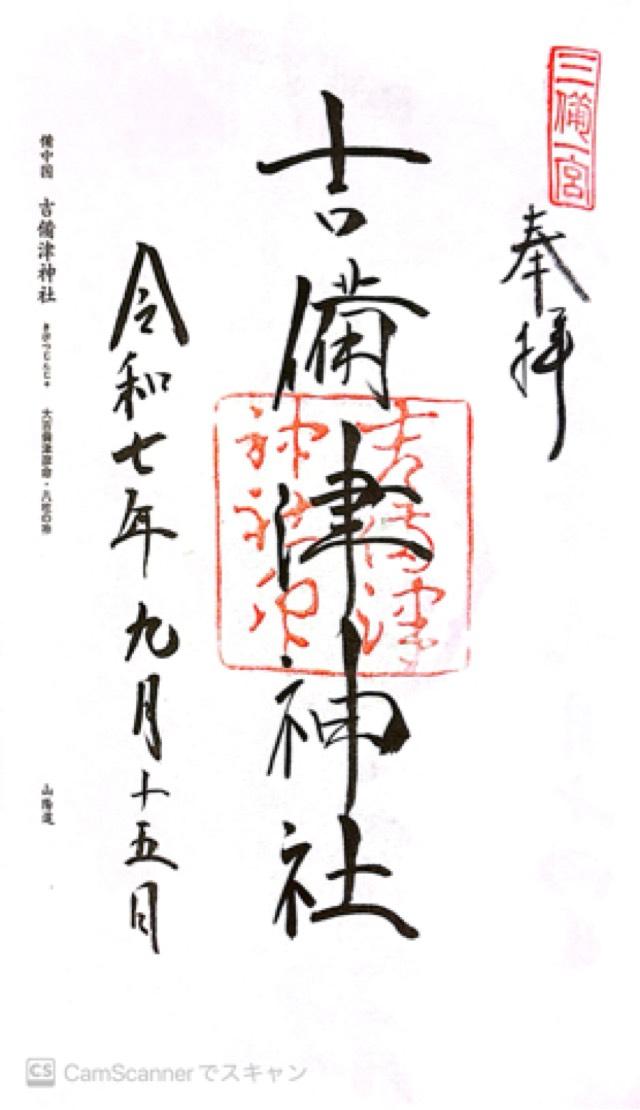 三備一宮
奉拝
吉備津神社
吉備津
神社印
令和七年九月十五日
備中国 吉備津神社 きびつじんじゃ 大吉備津彦命・八柱の神
山陽道
CS CamScannerでスキャン